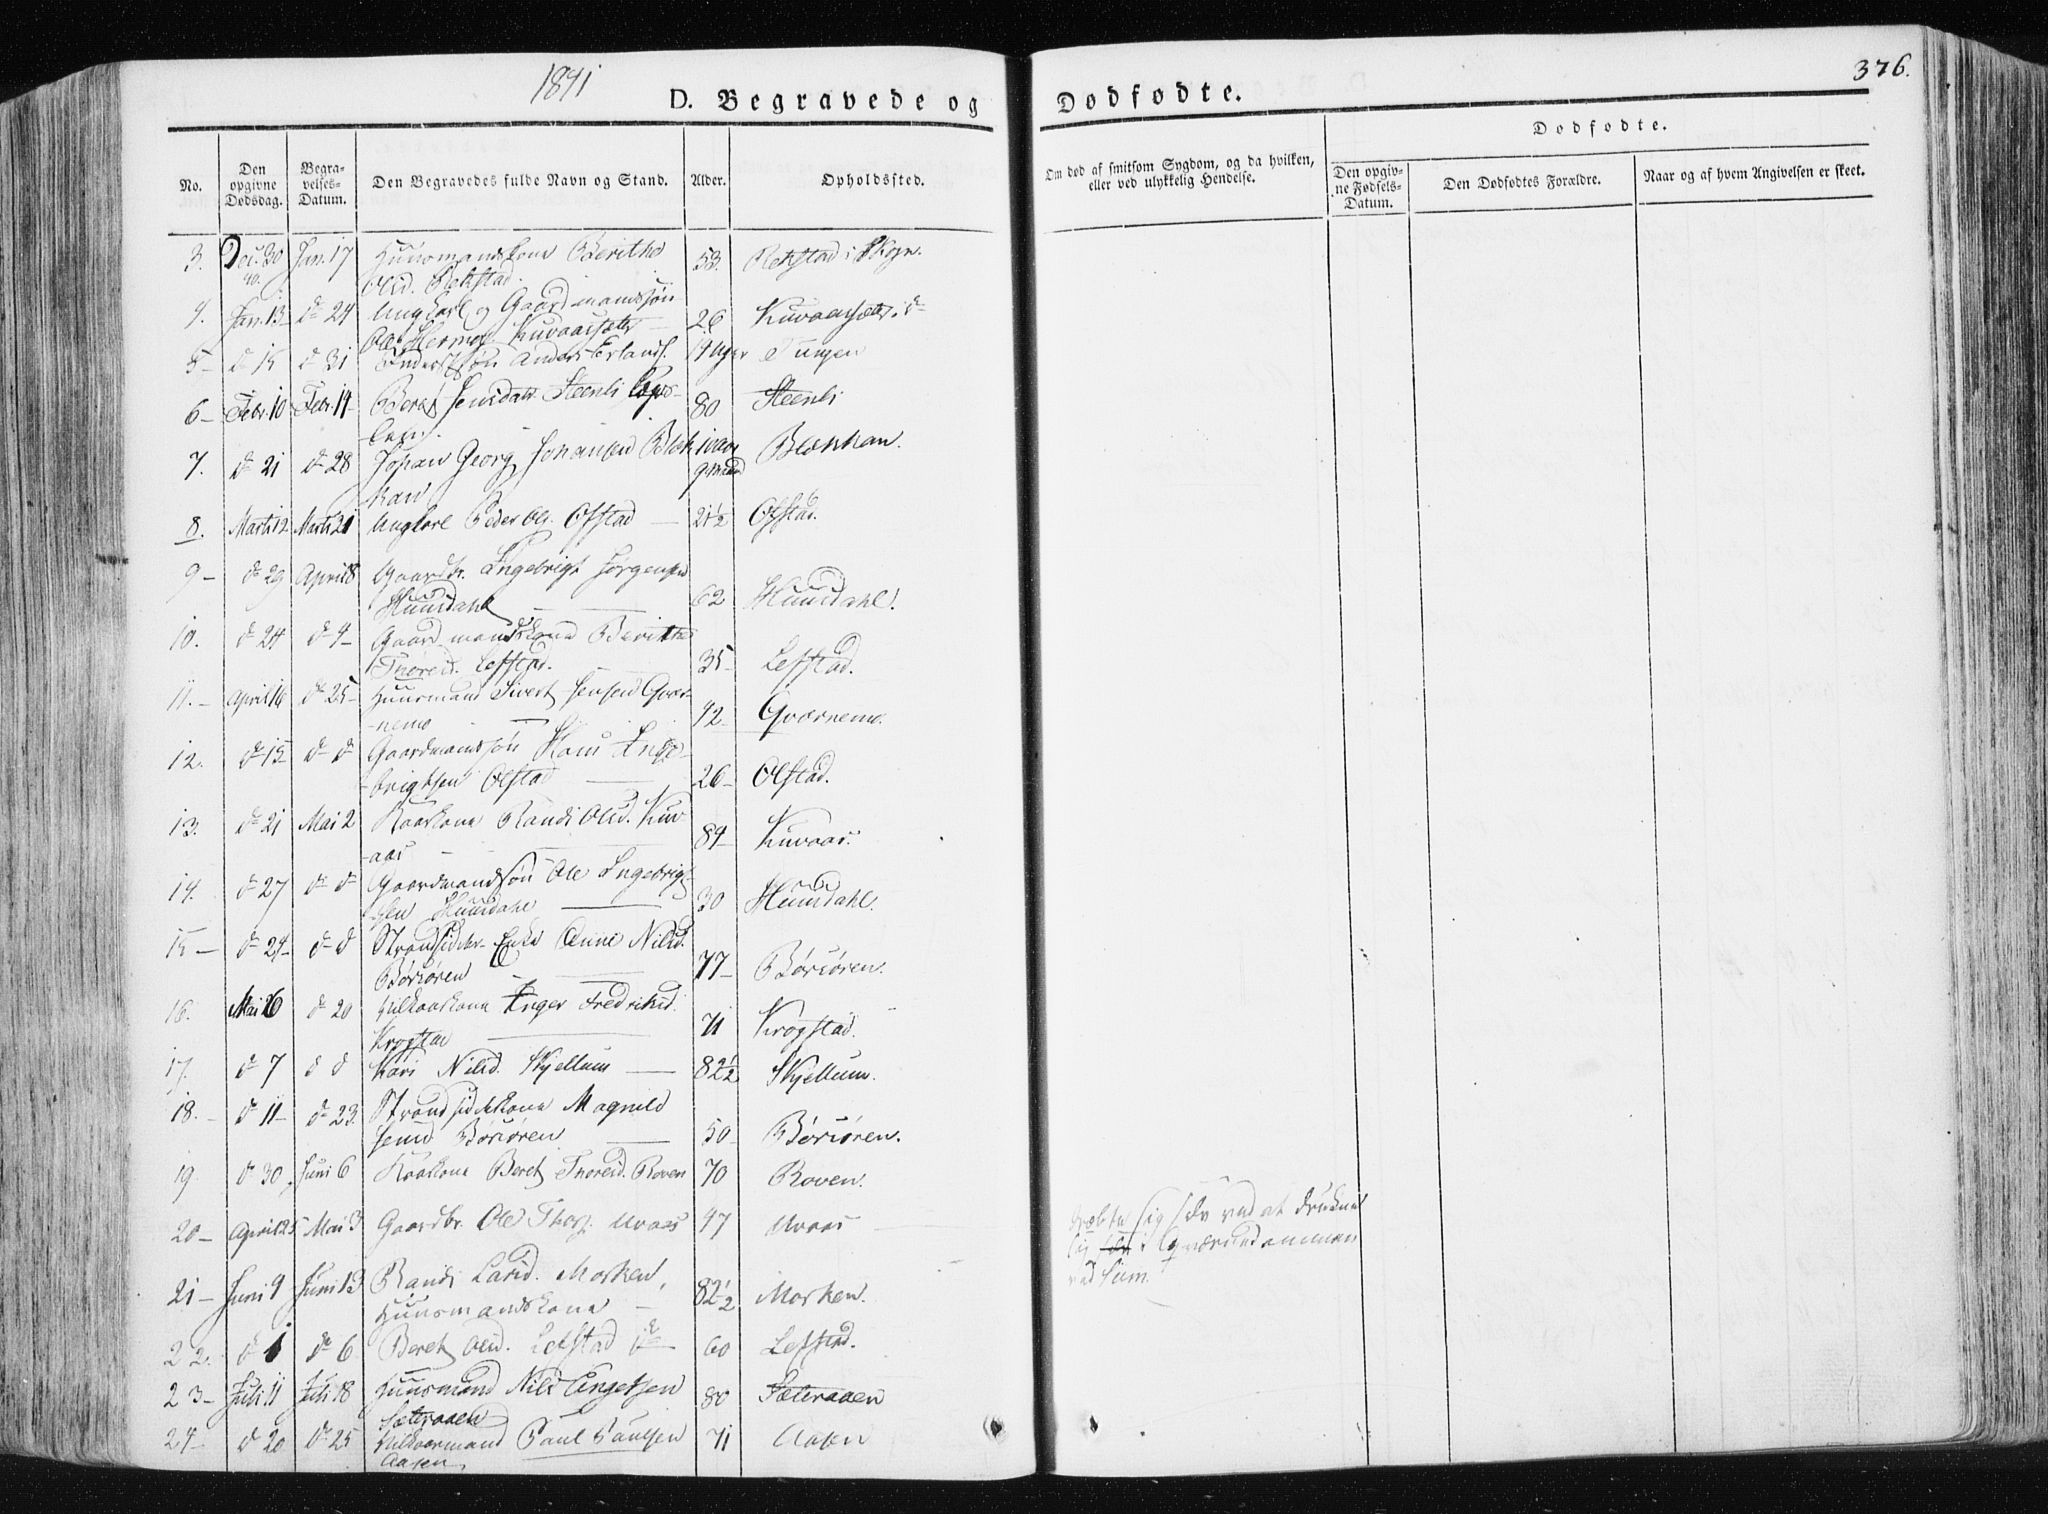 1841
D. Begravede og
Dodfodte.
376.
No.
Den opgivne Dodsdag.
Begravelses-Datum.
Den Begravedes fulde Navn og Stand.
Alder.
Opholdssted.
Om dod af smitsom Sygdom, og da hvilken, eller ved ulykkelig Hendelse.
Dodfodte.
Den opgivne Fodsels-Datum.
Den Dodfodtes Forældre.
Naar og af hvem Angivelsen er skeet.
3. Dec. 30 40. Jan. 17 Huusmandskone Berithe 53. Rekstad i Skogn.
Olsd. Rekstad
4. Jan. 13 d 24 Ungkarl og Gaardmandssøn 26 Kuvaassæter. d
Ole Kuvaassæter
5 d 15 d 31 Anders Erlands. 14 Uger Tungen
6 Febr. 10 Febr. 14 Beret Jensdatr. Steenli 80 Steenli
7. d 21 d 28 Johan Georg Johansen Blek- 1 aar Blekkan.
kan
8. Marts 12 Marts 21 Ungkarl Peder Ols. Ofstad 21½ Ofstad.
9 d 29 April 18 Gaardbr. Ingebrigt Jørgensen
Huusdahl 62 Huusdahl.
10. d 24 d 4 Gaardmandskone Berithe
Thoresd. Lefstad. 35 Lefstad.
11. April 16 d 25 Huusmand Sivert Jensen Qvær-
nemo 42 Qværnemo.
12. d 15 d d Gaardmandssøn Hans Inge-
brigtsen Olstad 26 Olstad.
13. d 21 Mai 2 Kaarkone Randi Olsd. Kuv-
aas 84 Kuvaas.
14. d 27 d d Gaardmandssøn Ole Ingebrigt-
sen Huusdahl 30 Huusdahl.
15 d 24 d d Strandsidder Enke Anne Nilsd.
Børsøren 77 Børsøren.
16. Mai 6 d 20 Vilkaarkone Inger Fredriksd.
Krogstad 71 Krogstad.
17. d 7 d d Kari Nilsd. Skjellum 82½ Skjellum.
18. d 11 d 23. Strandsidekone Magnild
Jensd Børsøren 50 Børsøren.
19. d 30 Juni 6 Kaarkone Beret Thoresd. Roven 70 Roven.
20 April 25 Mai 3 Gaardbr. Ole Thors. Uvaas 47 Uvaas
dræbte sig selv ved at drukne
sig i Qværnedammen
ved Sum.
21 Juni 9 Juni 13 Randi Larsd. Morken, 82½ Morken.
Huusmandskone
22. d 1 d 6 Beret Olsd. Lefstad d 60 Lefstad.
23 Juli 11 Juli 18 Huusmand Nils Engelsen 80 Sæteraaen
Sæteraaen
24 d 20 d 25 Vilkaarmand Paul Paulsen 71 Aasen
Aasen,